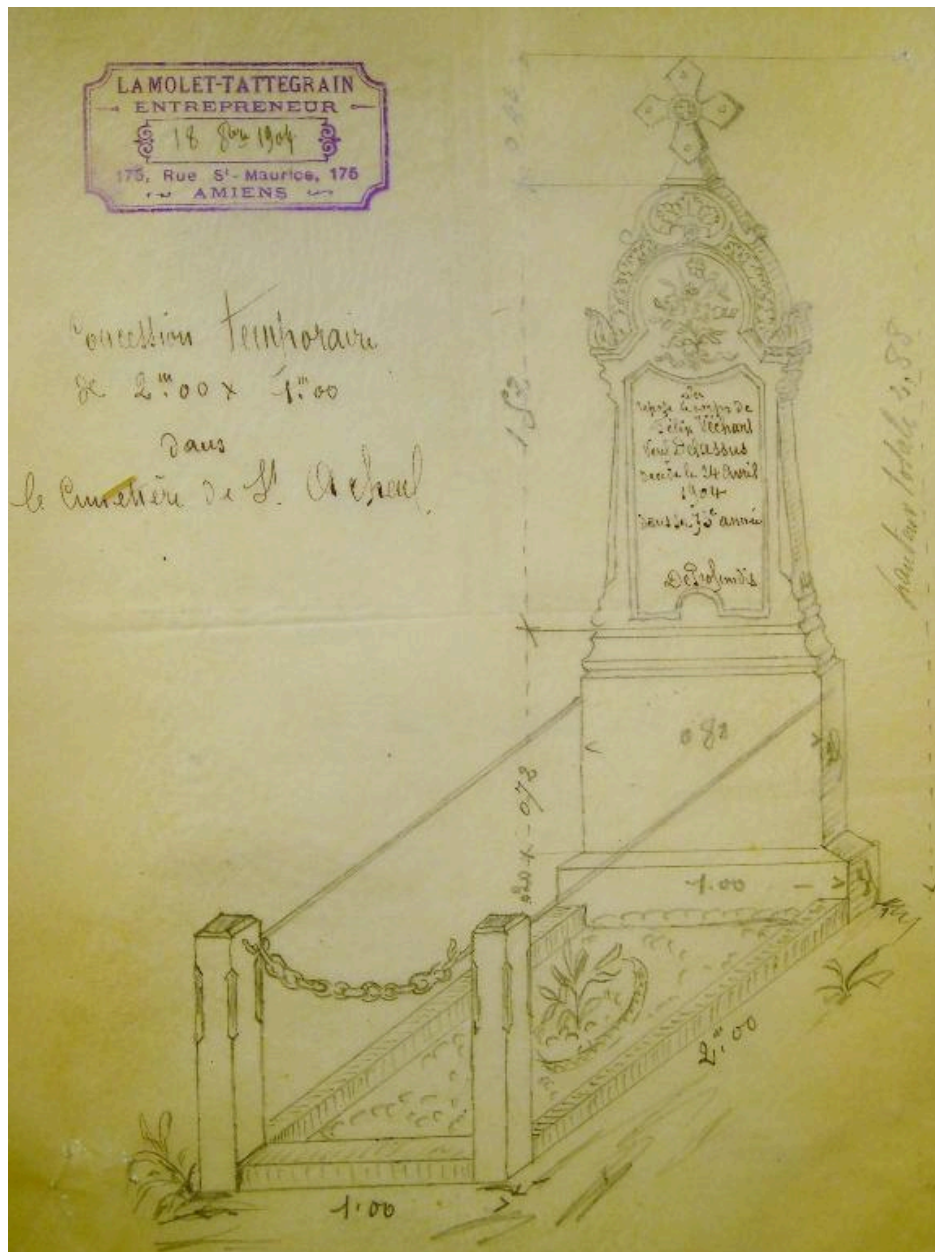 LAMOLET-TATTEGRAIN
ENTREPRENEUR
18 8bre 1904
175, Rue St-Maurice, 175
AMIENS
Concession temporaire
de 2m00 x 1m00
dans
le Cimetière de St. Acheul
repose le corps de
Félix Véchart
Delassus
décédé le 24 Avril
1904
dans sa 73e année
De Profundis
152
hauteur totale 2,88
0 82
020 + 072
1.00
2m00
1.00